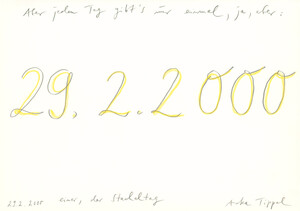 Aber jeden Tag gibt's nur einmal, ja, aber:
29. 2. 2000
29.2.2000 einer, der Stacheltag
Anke Tippel